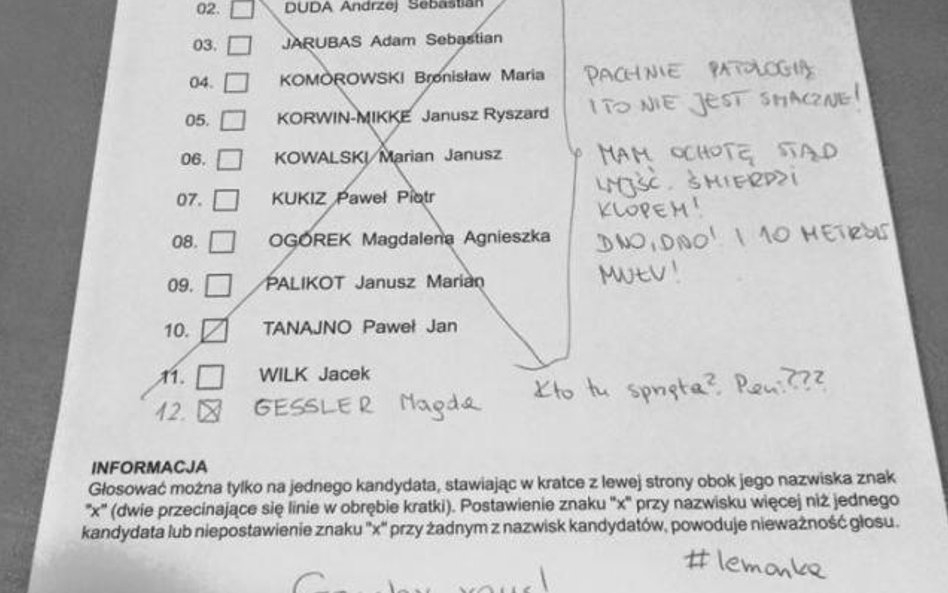 02. DUDA Andrzej Sebastian
03. JARUBAS Adam Sebastian
04. KOMOROWSKI Bronisław Maria
05. KORWIN-MIKKE Janusz Ryszard
06. KOWALSKI Marian Janusz
07. KUKIZ Paweł Piotr
08. OGÓREK Magdalena Agnieszka
09. PALIKOT Janusz Marian
10. TANAJNO Paweł Jan
11. WILK Jacek
12. GESSLER Magda
PACHNIE PATOLOGIĄ
I TO NIE JEST SMACZNE!
MAM OCHOTĘ STĄD
WYJŚĆ. ŚMIERDZI
KLOPEM!
DNO, DNO! I 10 METRÓW
MUŁU!
Kto tu sprząta? Pani???
INFORMACJA
Głosować można tylko na jednego kandydata, stawiając w kratce z lewej strony obok jego nazwiska znak
"x" (dwie przecinające się linie w obrębie kratki). Postawienie znaku "x" przy nazwisku więcej niż jednego
kandydata lub niepostawienie znaku "x" przy żadnym z nazwisk kandydatów, powoduje nieważność głosu.
#lemonka